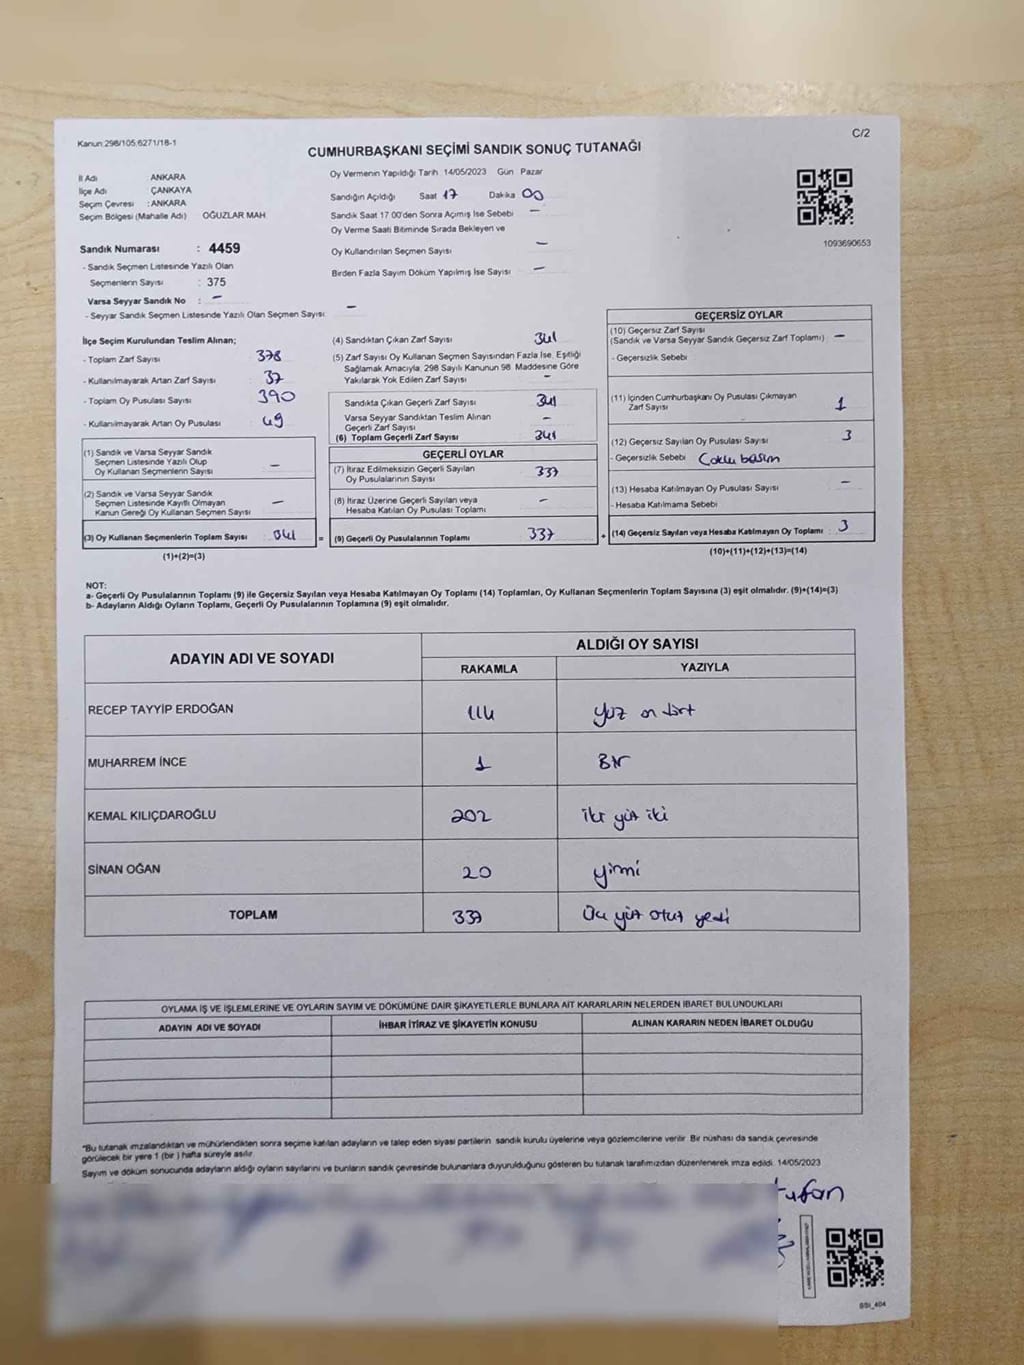 Kanun:298/105;6271/18-1
C/2
CUMHURBAŞKANI SEÇİMİ SANDIK SONUÇ TUTANAĞI
İl Adı ANKARA
İlçe Adı ÇANKAYA
Seçim Çevresi : ANKARA
Seçim Bölgesi (Mahalle Adı) OĞUZLAR MAH
Sandık Numarası : 4459
- Sandık Seçmen Listesinde Yazılı Olan
Seçmenlerin Sayısı : 375
Varsa Seyyar Sandık No : -
- Seyyar Sandık Seçmen Listesinde Yazılı Olan Seçmen Sayısı: -
Oy Vermenin Yapıldığı Tarih 14/05/2023 Gün Pazar
Sandığın Açıldığı Saat 17 Dakika 00
Sandık Saat 17 00'den Sonra Açımış İse Sebebi -
Oy Verme Saati Bitiminde Sırada Bekleyen ve
Oy Kullandırılan Seçmen Sayısı -
Birden Fazla Sayım Döküm Yapılmış İse Sayısı -
1093690653
İlçe Seçim Kurulundan Teslim Alınan;
- Toplam Zarf Sayısı 378
- Kullanılmayarak Artan Zarf Sayısı 37
- Toplam Oy Pusulası Sayısı 390
- Kullanılmayarak Artan Oy Pusulası 49
(1) Sandık ve Varsa Seyyar Sandık
Seçmen Listesinde Yazılı Olup
Oy Kullanan Seçmenlerin Sayısı -
(2) Sandık ve Varsa Seyyar Sandık
Seçmen Listesinde Kayıtlı Olmayan
Kanun Gereği Oy Kullanan Seçmen Sayısı -
(3) Oy Kullanan Seçmenlerin Toplam Sayısı 341 =
(1)+(2)=(3)
(4) Sandıktan Çıkan Zarf Sayısı 341
(5) Zarf Sayısı Oy Kullanan Seçmen Sayısından Fazla İse, Eşitliği
Sağlamak Amacıyla, 298 Sayılı Kanunun 98. Maddesine Göre
Yakılarak Yok Edilen Zarf Sayısı -
Sandıkta Çıkan Geçerli Zarf Sayısı 341
Varsa Seyyar Sandıktan Teslim Alınan
Geçerli Zarf Sayısı -
(6) Toplam Geçerli Zarf Sayısı 341
GEÇERLİ OYLAR
(7) İtiraz Edilmeksizin Geçerli Sayılan
Oy Pusulalarının Sayısı 337
(8) İtiraz Üzerine Geçerli Sayılan veya
Hesaba Katılan Oy Pusulası Toplamı -
(9) Geçerli Oy Pusulalarının Toplamı 337 +
GEÇERSİZ OYLAR
(10) Geçersiz Zarf Sayısı
(Sandık ve Varsa Seyyar Sandık Geçersiz Zarf Toplamı) -
- Geçersizlik Sebebi
(11) İçinden Cumhurbaşkanı Oy Pusulası Çıkmayan
Zarf Sayısı 1
(12) Geçersiz Sayılan Oy Pusulası Sayısı 3
- Geçersizlik Sebebi Çoklu basım
(13) Hesaba Katılmayan Oy Pusulası Sayısı -
- Hesaba Katılmama Sebebi
(14) Geçersiz Sayılan veya Hesaba Katılmayan Oy Toplamı : 3
(10)+(11)+(12)+(13)=(14)
NOT:
a- Geçerli Oy Pusulalarının Toplamı (9) ile Geçersiz Sayılan veya Hesaba Katılmayan Oy Toplamı (14) Toplamları, Oy Kullanan Seçmenlerin Toplam Sayısına (3) eşit olmalıdır. (9)+(14)=(3)
b- Adayların Aldığı Oyların Toplamı, Geçerli Oy Pusulalarının Toplamına (9) eşit olmalıdır.
ADAYIN ADI VE SOYADI ALDIĞI OY SAYISI
RAKAMLA YAZIYLA
RECEP TAYYİP ERDOĞAN 114 yüz on dört
MUHARREM İNCE 1 Bir
KEMAL KILIÇDAROĞLU 202 iki yüz iki
SİNAN OĞAN 20 yirmi
TOPLAM 337 Üç yüz otuz yedi
OYLAMA İŞ VE İŞLEMLERİNE VE OYLARIN SAYIM VE DÖKÜMÜNE DAİR ŞİKAYETLERLE BUNLARA AİT KARARLARIN NELERDEN İBARET BULUNDUKLARI
ADAYIN ADI VE SOYADI İHBAR İTİRAZ VE ŞİKAYETİN KONUSU ALINAN KARARIN NEDEN İBARET OLDUĞU
*Bu tutanak imzalandıktan ve mühürlendikten sonra seçime katılan adayların ve talep eden siyasi partilerin sandık kurulu üyelerine veya gözlemcilerine verilir. Bir nüshası da sandık çevresinde
görülecek bir yere 1 (bir ) hafta süreyle asılır.
Sayım ve döküm sonucunda adayların aldığı oyların sayılarını ve bunların sandık çevresinde bulunanlara duyurulduğunu gösteren bu tutanak tarafımızdan düzenlenerek imza edildi. 14/05/2023
tufan
BSI_404